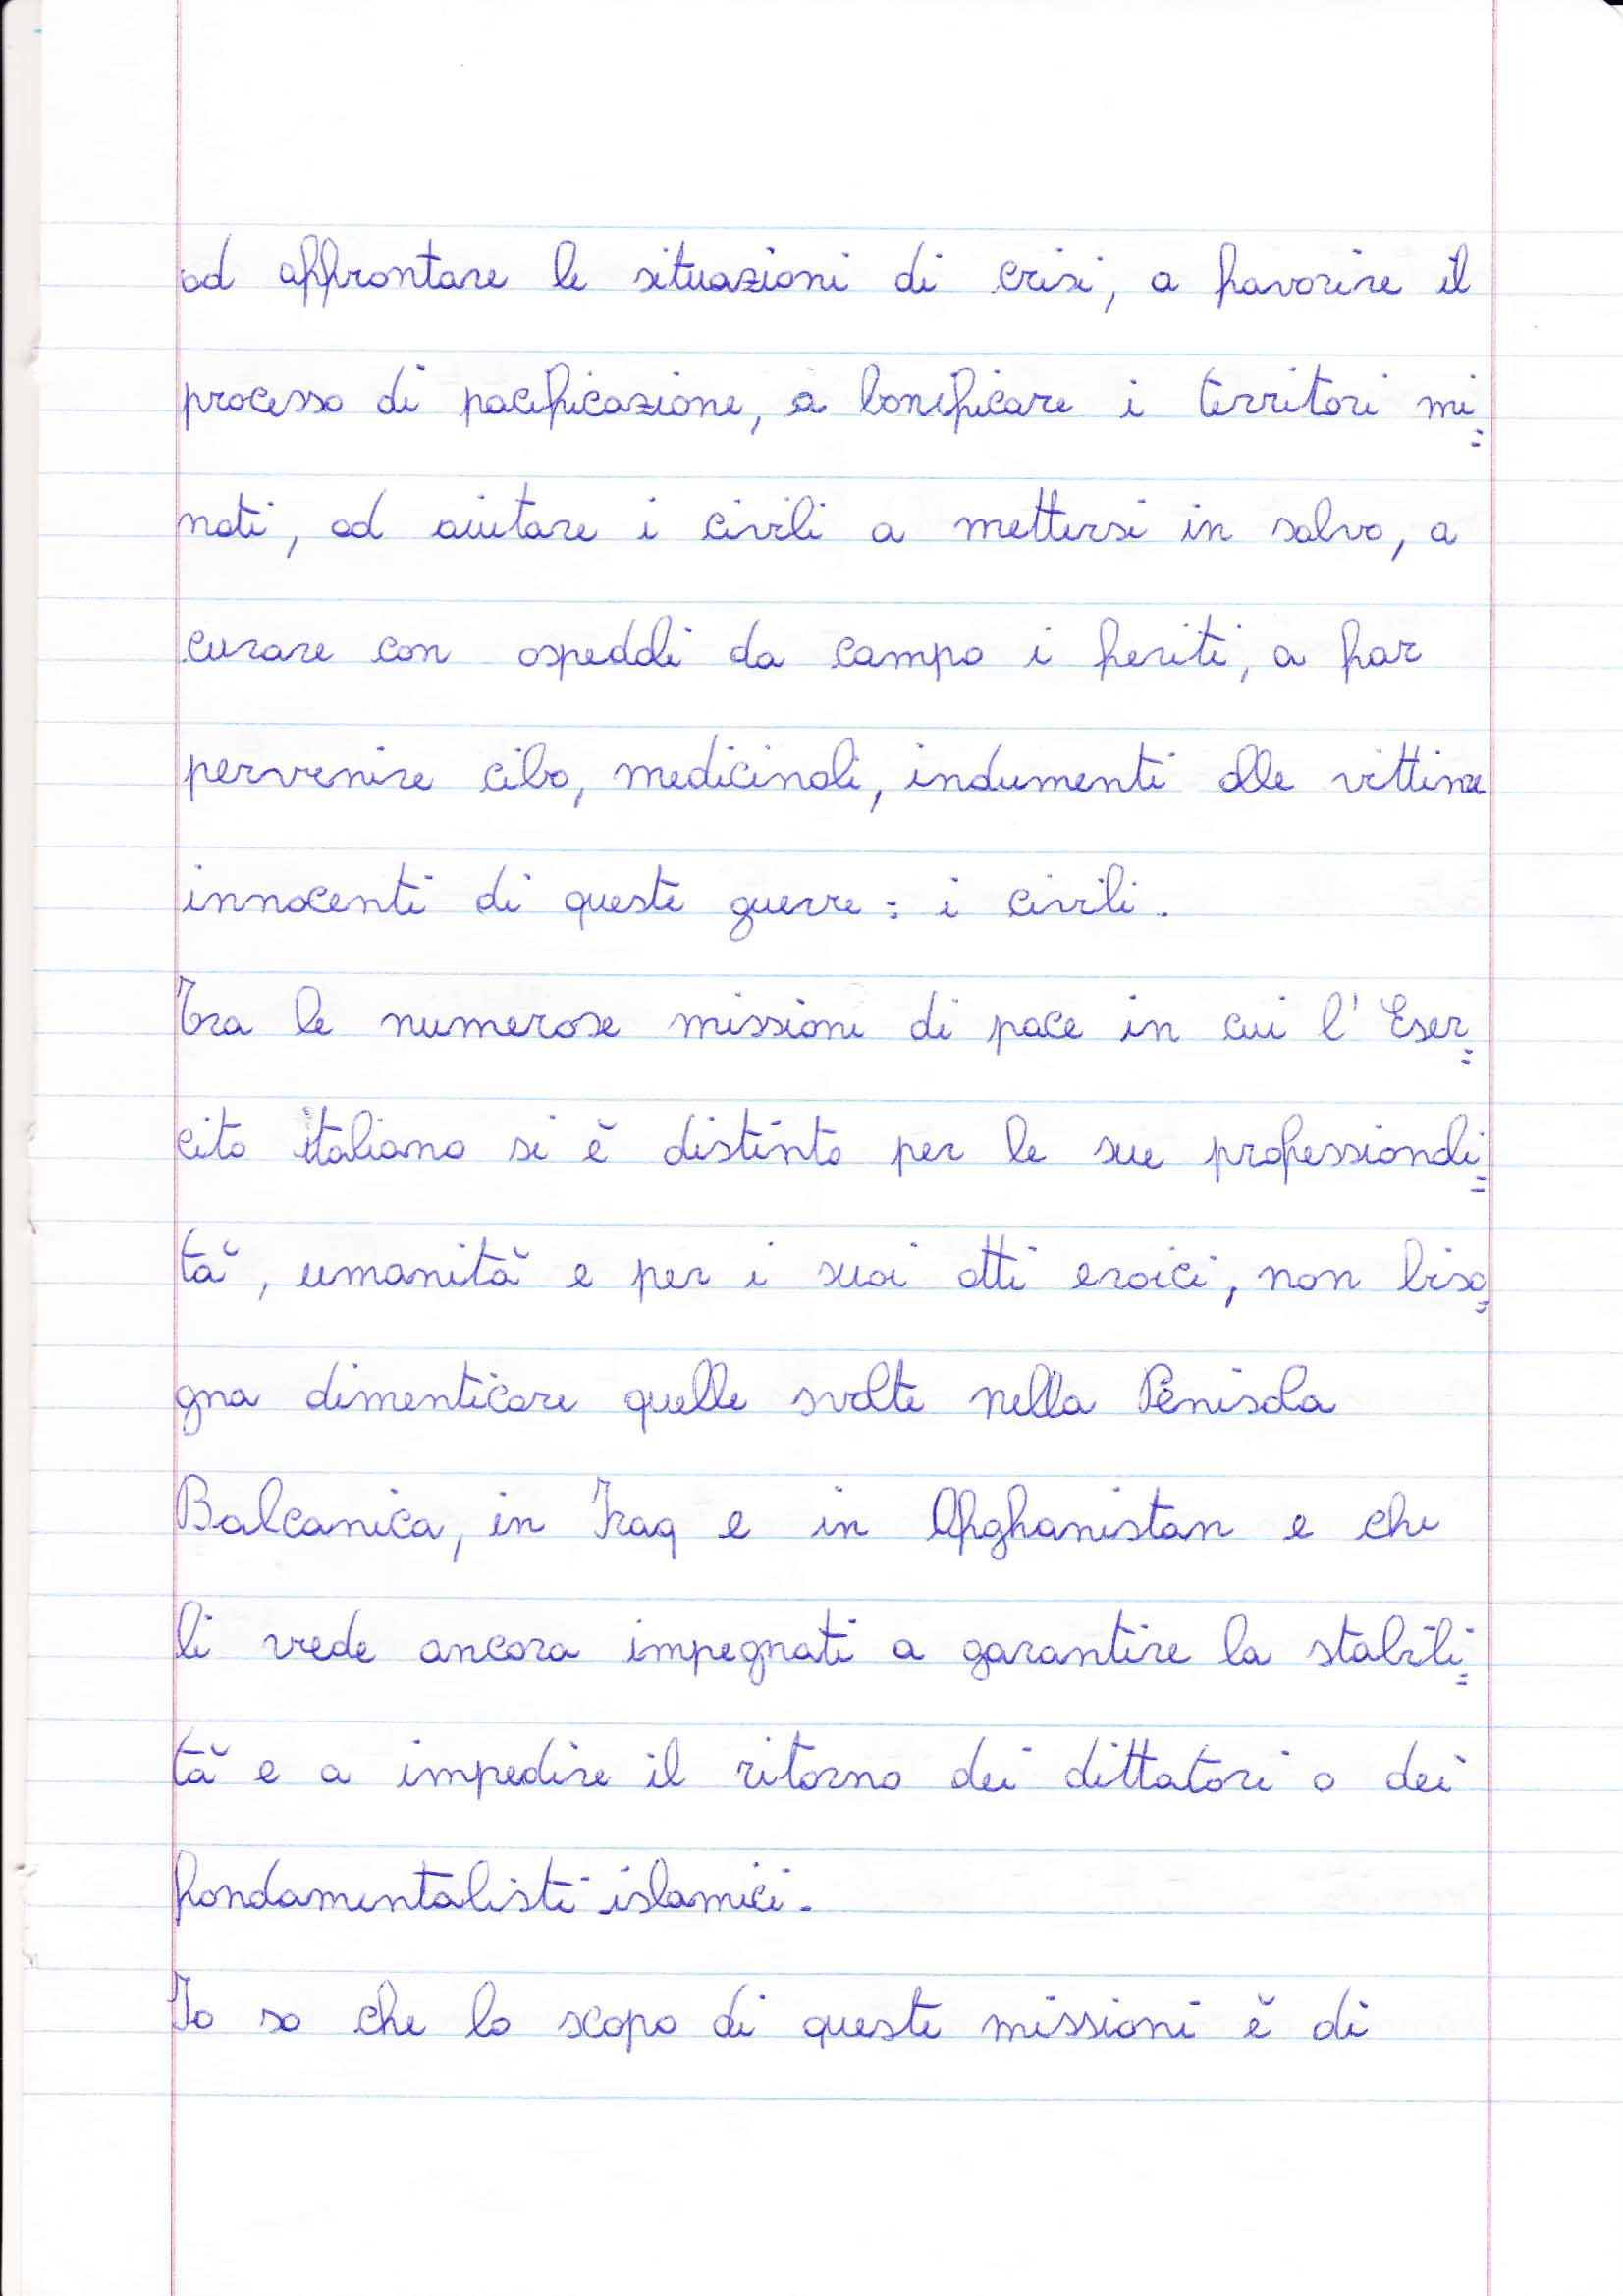 ad affrontare le situazioni di crisi, a favorire il
processo di pacificazione, a bonificare i territori mi=
nati, ad aiutare i civili a mettersi in salvo, a
curare con ospedali da campo i feriti, a far
pervenire cibo, medicinali, indumenti alle vittime
innocenti di queste guerre: i civili.
Tra le numerose missioni di pace in cui l'Eser=
cito italiano si è distinto per le sue professionali=
tà, umanità e per i suoi atti eroici, non biso=
gna dimenticare quelle svolte nella Penisola
Balcanica, in Iraq e in Afghanistan e che
li vede ancora impegnati a garantire la stabili=
tà e a impedire il ritorno dei dittatori o dei
fondamentalisti islamici.
Io so che lo scopo di queste missioni è di